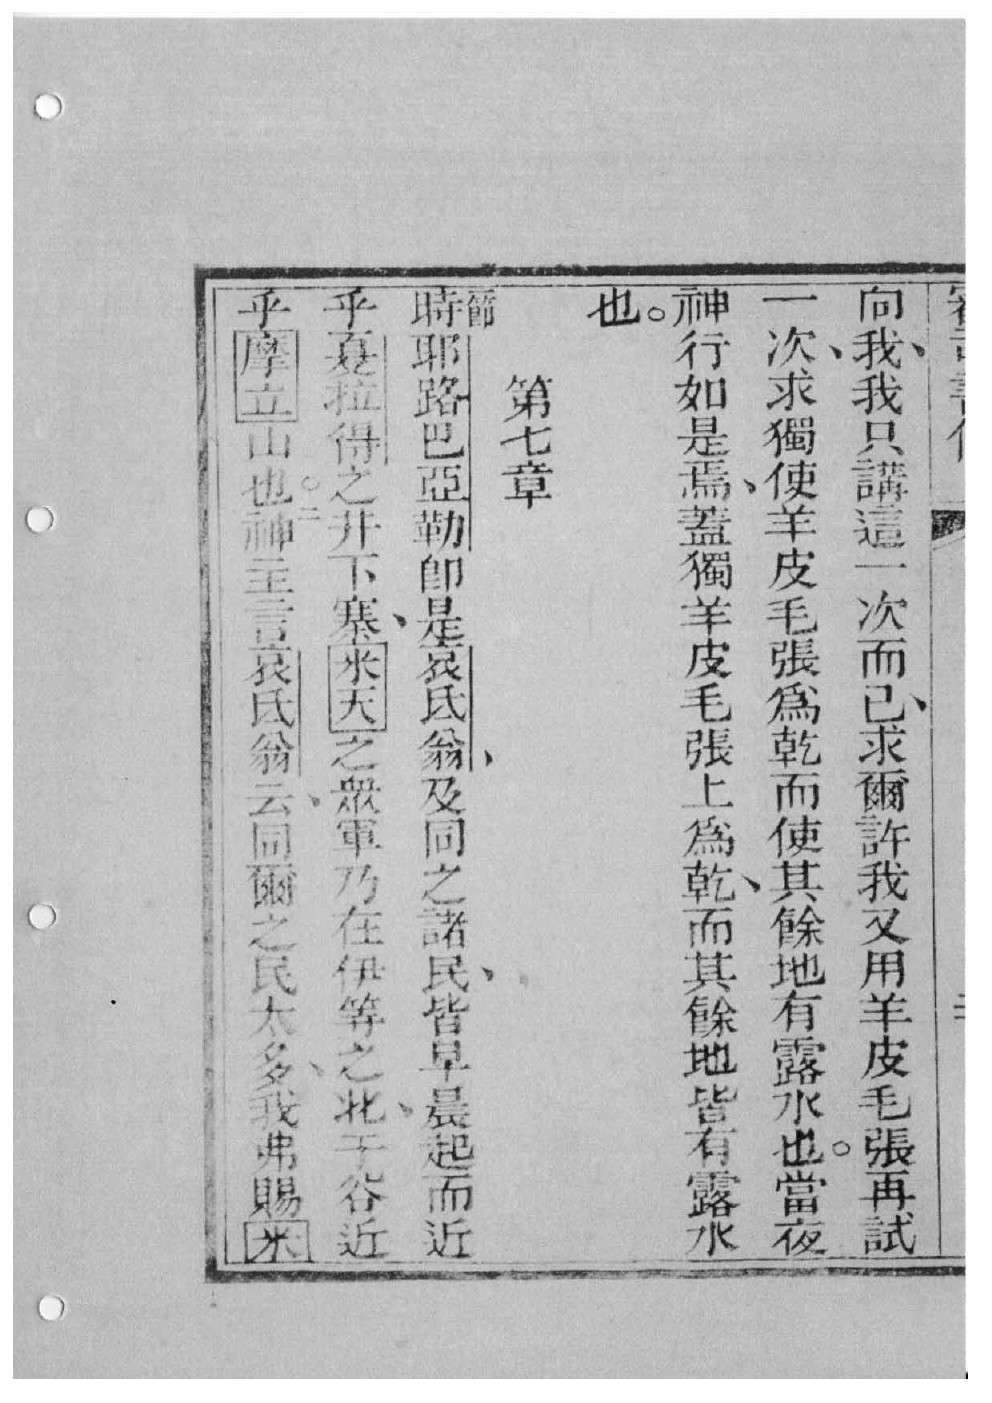 審司書傳
二
向我、我只講這一次而已、求爾許我又用羊皮毛張再試
一次、求獨使羊皮毛張爲乾而使其餘地有露水也。當夜
神行如是焉、蓋獨羊皮毛張上爲乾、而其餘地皆有露水
也。
第七章
節
時耶路巴亞勒卽是哀氐翁、及同之諸民、皆早晨起而近
乎夏拉得之井下寨、米天之衆軍乃在伊等之北、于谷近
乎摩立山也。二神主言哀氐翁云、同爾之民太多、我弗賜米